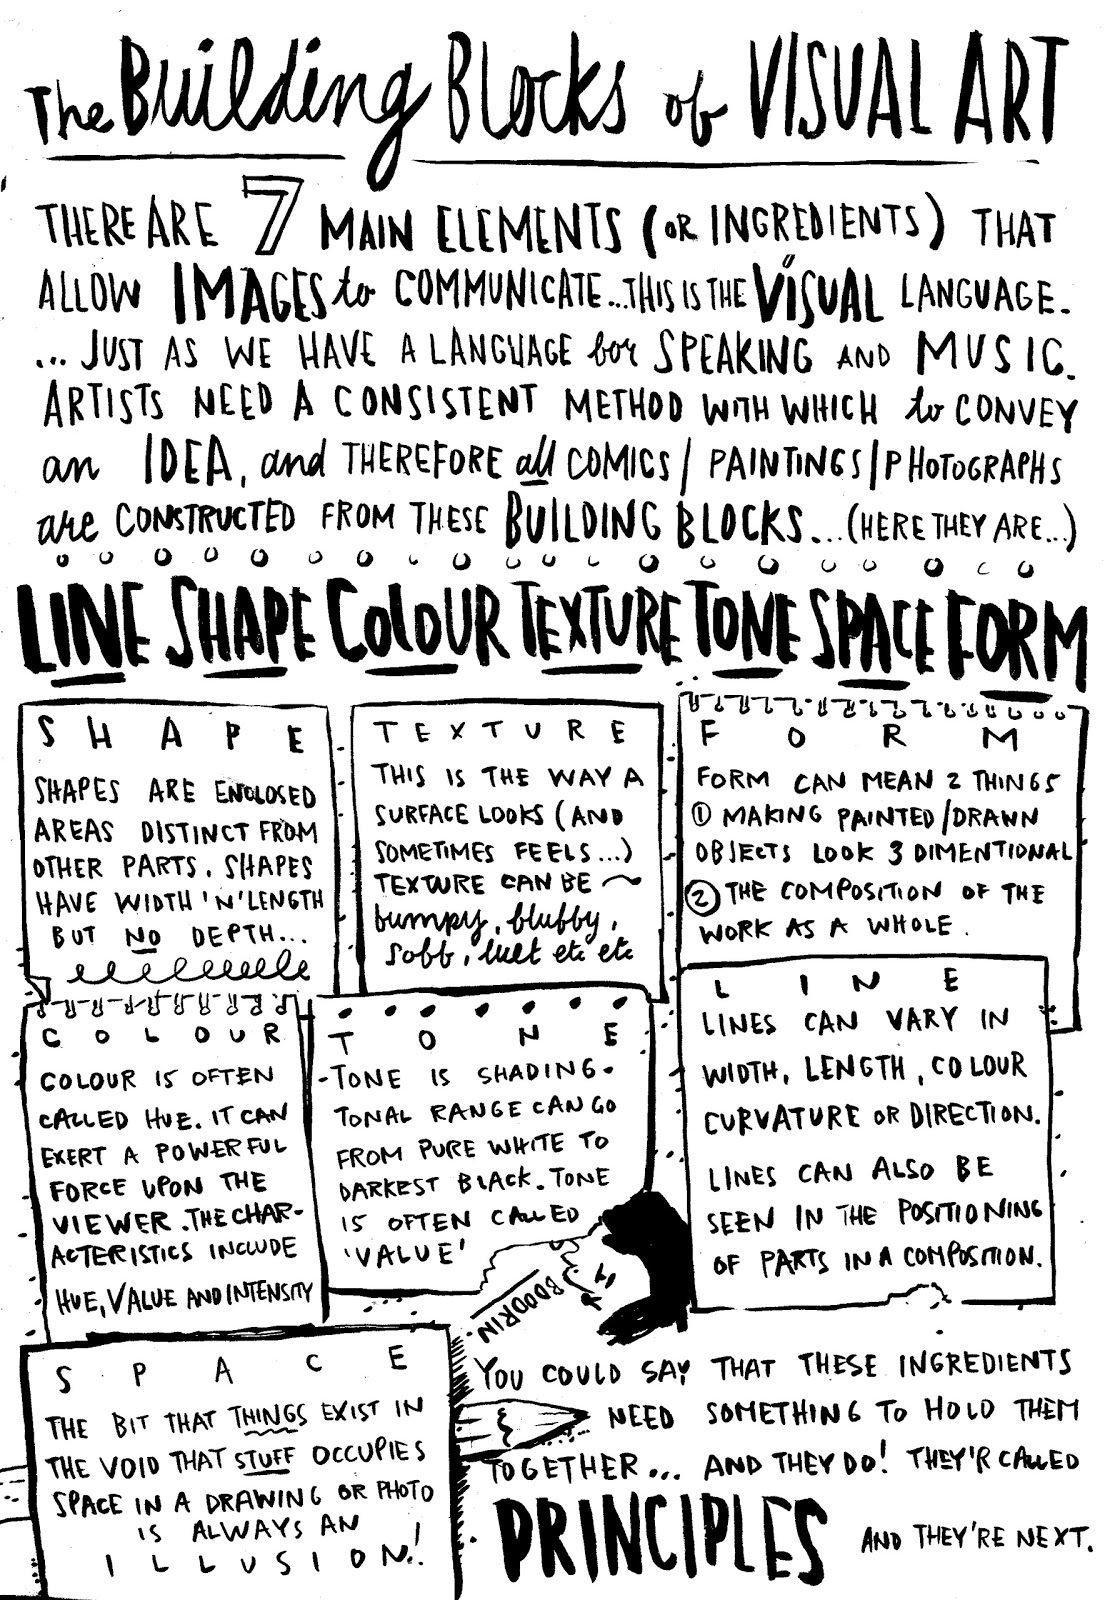 The Building Blocks of VISUAL ART
THERE ARE 7 MAIN ELEMENTS (OR INGREDIENTS) THAT
ALLOW IMAGES to COMMUNICATE...THIS IS THE VISUAL LANGUAGE.
... JUST AS WE HAVE A LANGUAGE for SPEAKING AND MUSIC.
ARTISTS NEED A CONSISTENT METHOD WITH WHICH to CONVEY
an IDEA, and THEREFORE all COMICS / PAINTINGS / PHOTOGRAPHS
are CONSTRUCTED FROM THESE BUILDING BLOCKS...(HERE THEY ARE...)
LINE SHAPE COLOUR TEXTURE TONE SPACE FORM
SHAPE
SHAPES ARE ENCLOSED
AREAS DISTINCT FROM
OTHER PARTS. SHAPES
HAVE WIDTH 'N' LENGTH
BUT NO DEPTH...
TEXTURE
THIS IS THE WAY A
SURFACE LOOKS (AND
SOMETIMES FEELS...)
TEXTURE CAN BE
bumpy, blubby,
soft, wet etc etc
FORM
FORM CAN MEAN 2 THINGS
① MAKING PAINTED/DRAWN
OBJECTS LOOK 3 DIMENTIONAL
② THE COMPOSITION OF THE
WORK AS A WHOLE.
COLOUR
COLOUR IS OFTEN
CALLED HUE. IT CAN
EXERT A POWERFUL
FORCE UPON THE
VIEWER. THE CHAR-
ACTERISTICS INCLUDE
HUE, VALUE AND INTENSITY
TONE
-TONE IS SHADING.
TONAL RANGE CAN GO
FROM PURE WHITE TO
DARKEST BLACK. TONE
IS OFTEN CALLED
'VALUE'
LINE
LINES CAN VARY IN
WIDTH, LENGTH, COLOUR
CURVATURE OR DIRECTION.
LINES CAN ALSO BE
SEEN IN THE POSITIONING
OF PARTS IN A COMPOSITION.
SPACE
THE BIT THAT THINGS EXIST IN
THE VOID THAT STUFF OCCUPIES
SPACE IN A DRAWING OR PHOTO
IS ALWAYS AN
ILLUSION!
YOU COULD SAY THAT THESE INGREDIENTS
NEED SOMETHING TO HOLD THEM
TOGETHER... AND THEY DO! THEY'R CALLED
PRINCIPLES AND THEY'RE NEXT.